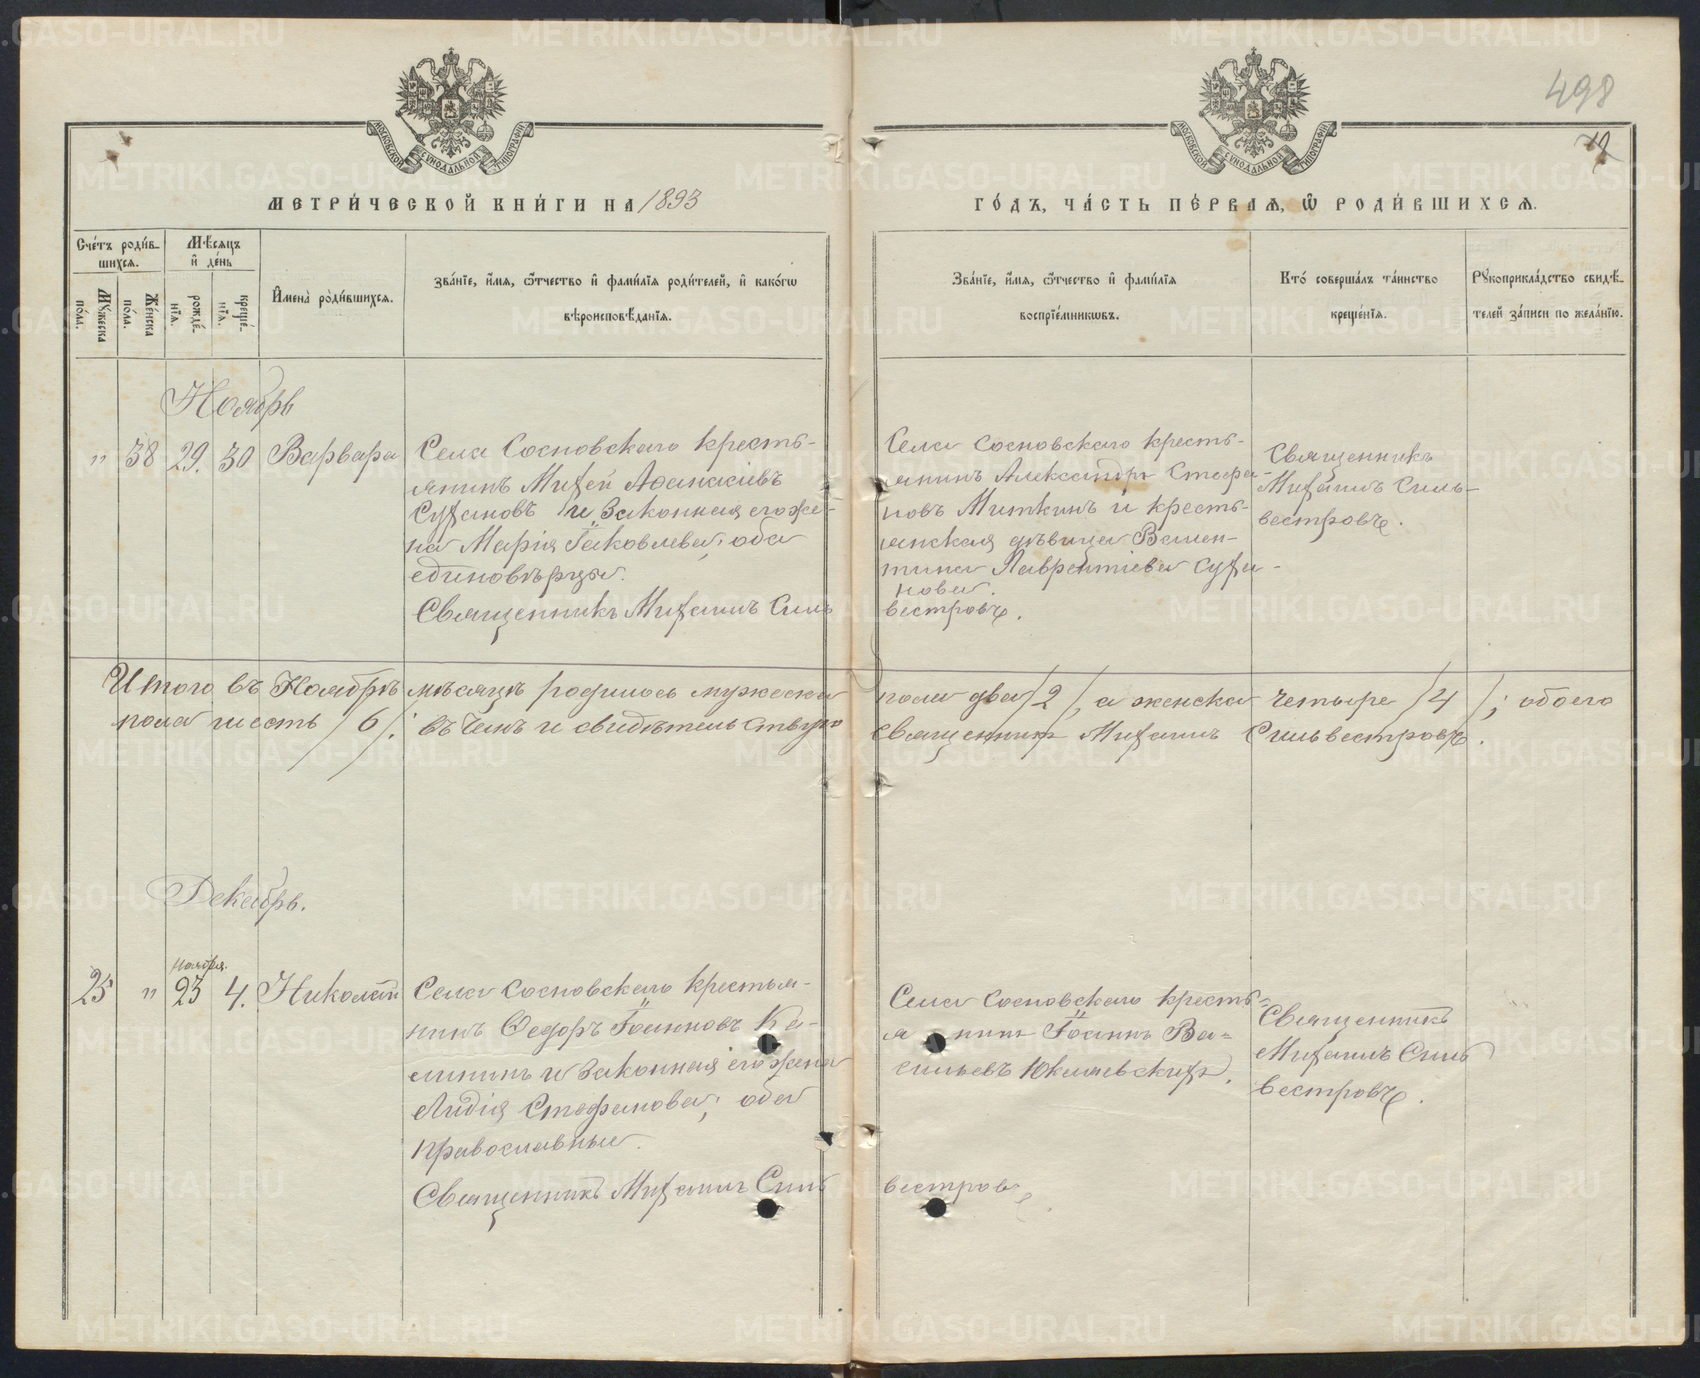 498
12
МЕТРИ́ЧЕСКОЙ КНИ́ГИ НА 1893
ГО́ДЪ, ЧА́СТЬ ПЕ́РВАѦ, Ѿ РОДИ́ВШИХСѦ.
Сче́тъ роди́вшихсѧ.
Мѣ́сяцъ и҆ де́нь
Мꙋ́жеска по́ла.
Же́нска по́ла.
рожде́нїѧ.
креще́нїѧ.
И҆мена̀ роди́вшихсѧ.
Зва́нїе, и҆́мѧ, ѻ҆́тчество и҆ фами́лїѧ роди́телей, и҆ како́гѡ
вѣроисповѣ́данїѧ.
Зва́нїе, и҆́мѧ, ѻ҆́тчество и҆ фами́лїѧ
воспрїе́мникѡвъ.
Кто̀ соверша́лъ та́инство
креще́нїѧ.
Рꙋкоприкла́дство свидѣ́-
телей за́писи по жела́нїю.
Ноябрь
" 38 29. 30 Варвара
Села Сосновскаго кресть-
янинъ Михей Аѳанасіевъ
Сухановъ и законная его же-
на Марія Іаковлева, оба
единовѣрцы.
Священникъ Михаилъ Силь
Села Сосновскаго кресть-
янинъ Александръ Стефа-
новъ Миткинъ и кресть-
янская дѣвица Вален-
тина Лаврентіева Суха-
нова.
вестровъ.
Священникъ
Михаилъ Силь-
вестровъ.
Итого въ Ноябрѣ мѣсяцѣ родилось мужеска пола два /2/, а женска четыре /4/; обоего
пола шесть /6/. въ чемъ и свидѣтельствую Священникъ Михаилъ Сильвестровъ.
Декабрь.
ноября.
25 " 23 4. Николай
Села Сосновскаго крестья-
нинъ Ѳедоръ Іоанновъ Ка-
лининъ и законная его жена
Лидія Стефанова; оба
православные.
Священникъ Михаилъ Силь
Села Сосновскаго кресть-
янинъ Іоаннъ Ва-
сильевъ
вестровъ
Священникъ
Михаилъ Силь
вестровъ.